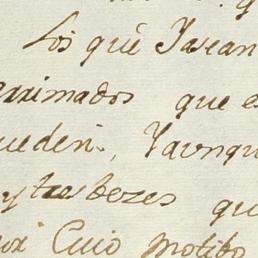 Los que
rrimados que e
ueden, Yaunqu
y tres bezes qu
Cuio motibo